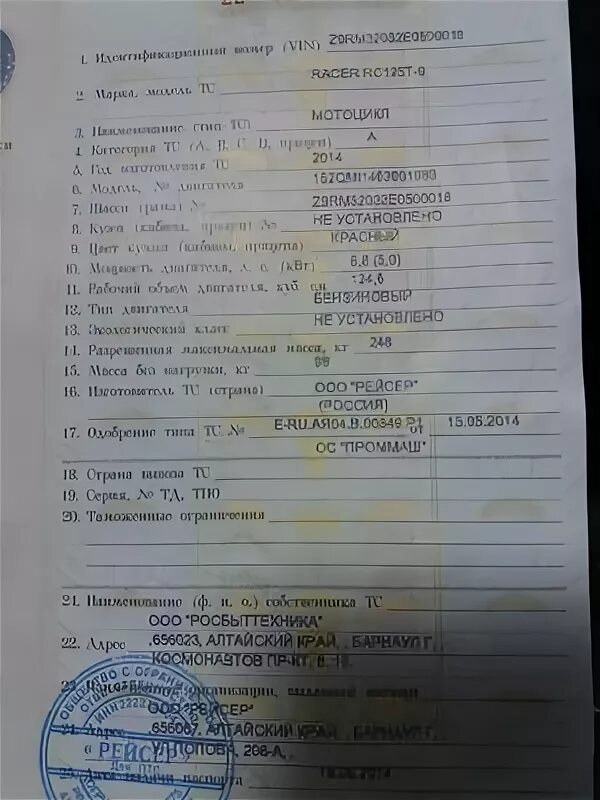 1. Идентификационный номер (VIN) Z9RM32032E0500018
2. Марка, модель ТС RACER RC125T-9
3. Наименование (тип ТС) МОТОЦИКЛ
4. Категория ТС (А, В, С, D, прицеп) А
5. Год изготовления ТС 2014
6. Модель, № двигателя
7. Шасси (рама) № Z9RM32032E0500018
8. Кузов (кабина, прицеп) № НЕ УСТАНОВЛЕНО
9. Цвет кузова (кабины, прицепа) КРАСНЫЙ
10. Мощность двигателя, л. с. (кВт) 6,8 (5,0)
11. Рабочий объем двигателя, куб. см 124,6
12. Тип двигателя БЕНЗИНОВЫЙ
13. Экологический класс НЕ УСТАНОВЛЕНО
14. Разрешенная максимальная масса, кг 248
15. Масса без нагрузки, кг
16. Изготовитель ТС (страна) ООО "РЕЙСЕР"
(РОССИЯ)
17. Одобрение типа ТС № E-RU.АЯ04.В.00349 Р1 от 15.05.2014
ОС "ПРОММАШ"
18. Страна вывоза ТС
19. Серия, № ТД, ТПО
20. Таможенные ограничения
21. Наименование (ф. и. о.) собственника ТС
ООО "РОСБЫТТЕХНИКА"
22. Адрес 656023, АЛТАЙСКИЙ КРАЙ, БАРНАУЛ Г,
КОСМОНАВТОВ ПР-КТ,
23. организации,
ООО "РЕЙСЕР"
24. Адрес АЛТАЙСКИЙ КРАЙ, БАРНАУЛ Г,
УЛ ПОПОВА, 206-А,
25. паспорта
ОБЩЕСТВО С ОГРАНИЧ
ИНН 2222
«РЕЙСЕР»
Для ПТС